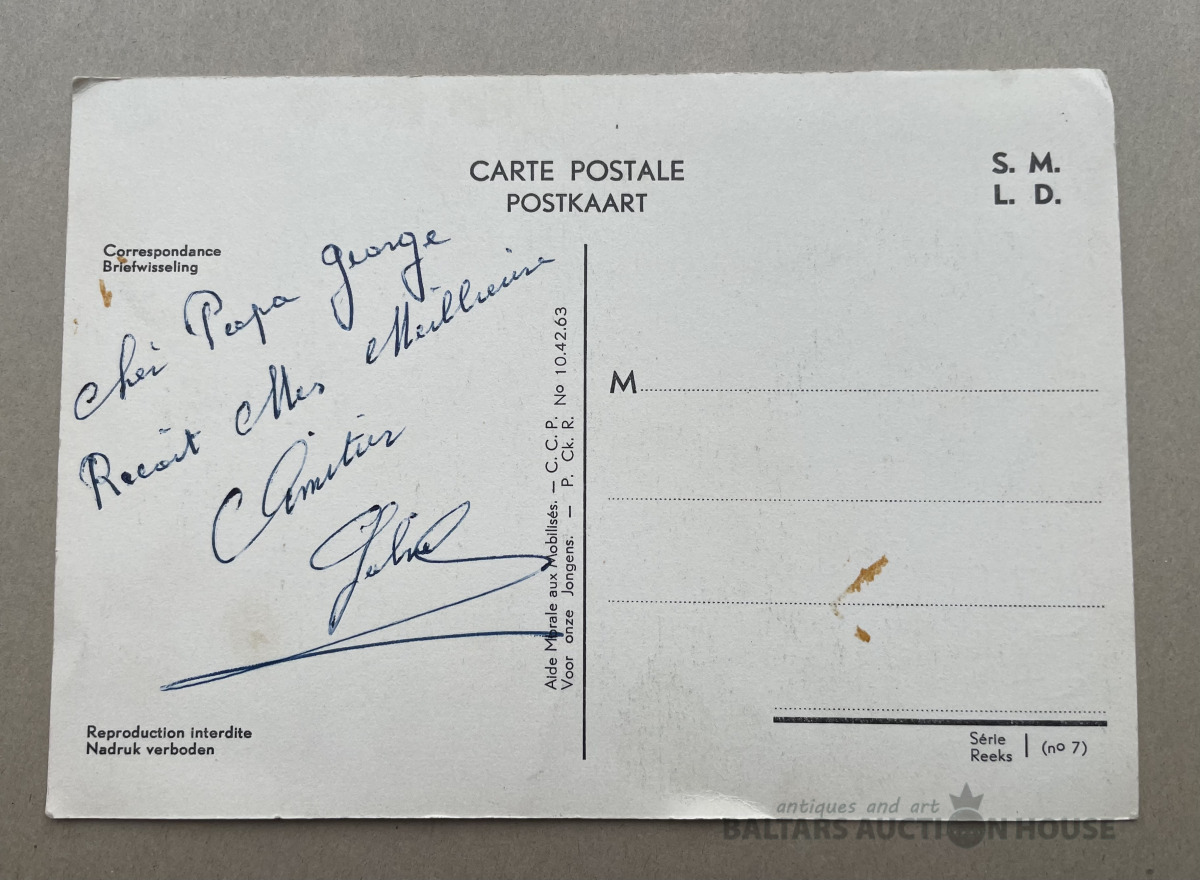 CARTE POSTALE
POSTKAART
S. M.
L. D.
Correspondance
Briefwisseling
Cher Papa George
Recoit Mes Meillieure
Amitier
Aide Morale aux Mobilisés. — C. C. P.
Voor onze Jongens. — P. Ck. R. No 10.42.63
M
Reproduction interdite
Nadruk verboden
Série
Reeks
(no 7)
antiques and art
BALTARS AUCTION HOUSE